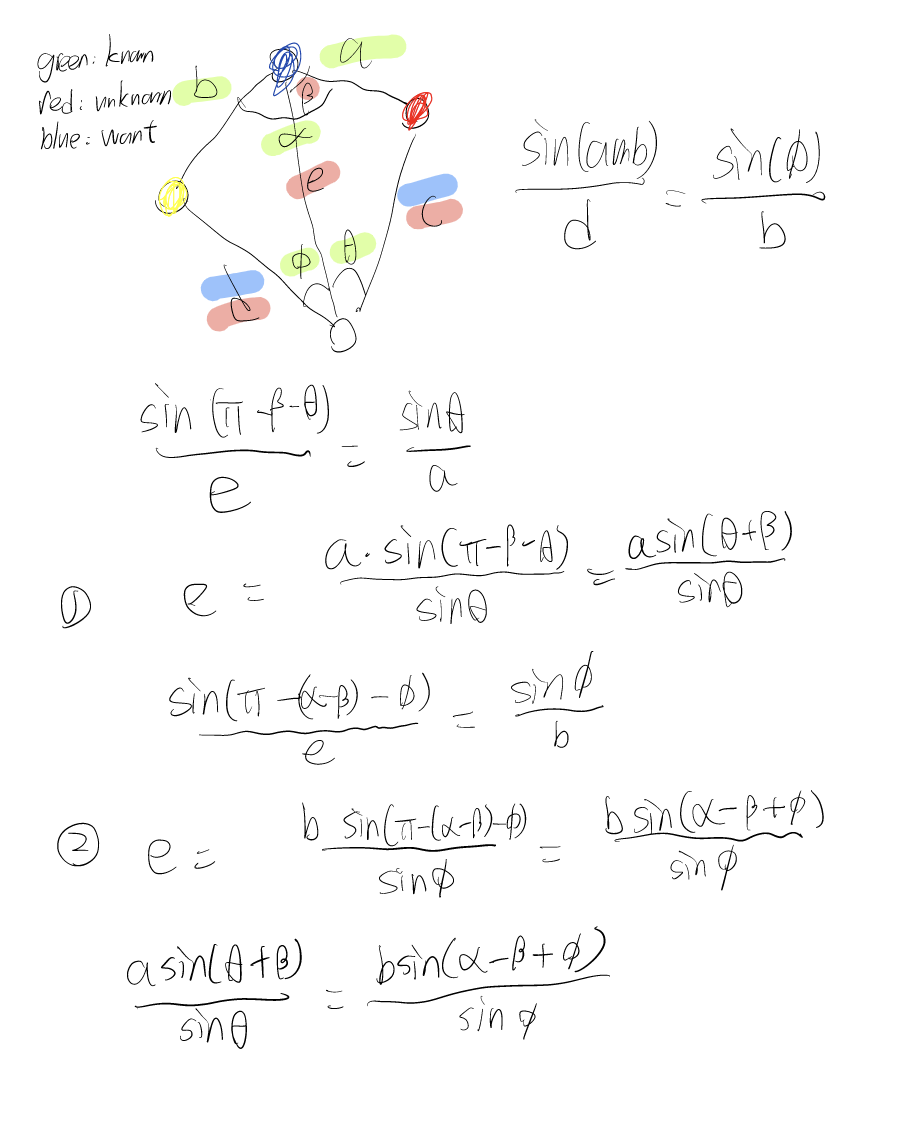 green: known
red: unknown
blue: want
a
b
β
α
e
c
d
ϕ θ
sin(amb)/d = sin(ϕ)/b
sin(π-β-θ)/e = sinθ/a
① e = a·sin(π-β-θ)/sinθ = asin(θ+β)/sinθ
sin(π-(α-β)-ϕ)/e = sinϕ/b
② e = b sin(π-(α-β)-ϕ)/sinϕ = bsin(α-β+ϕ)/sinϕ
asin(θ+β)/sinθ = bsin(α-β+ϕ)/sinϕ